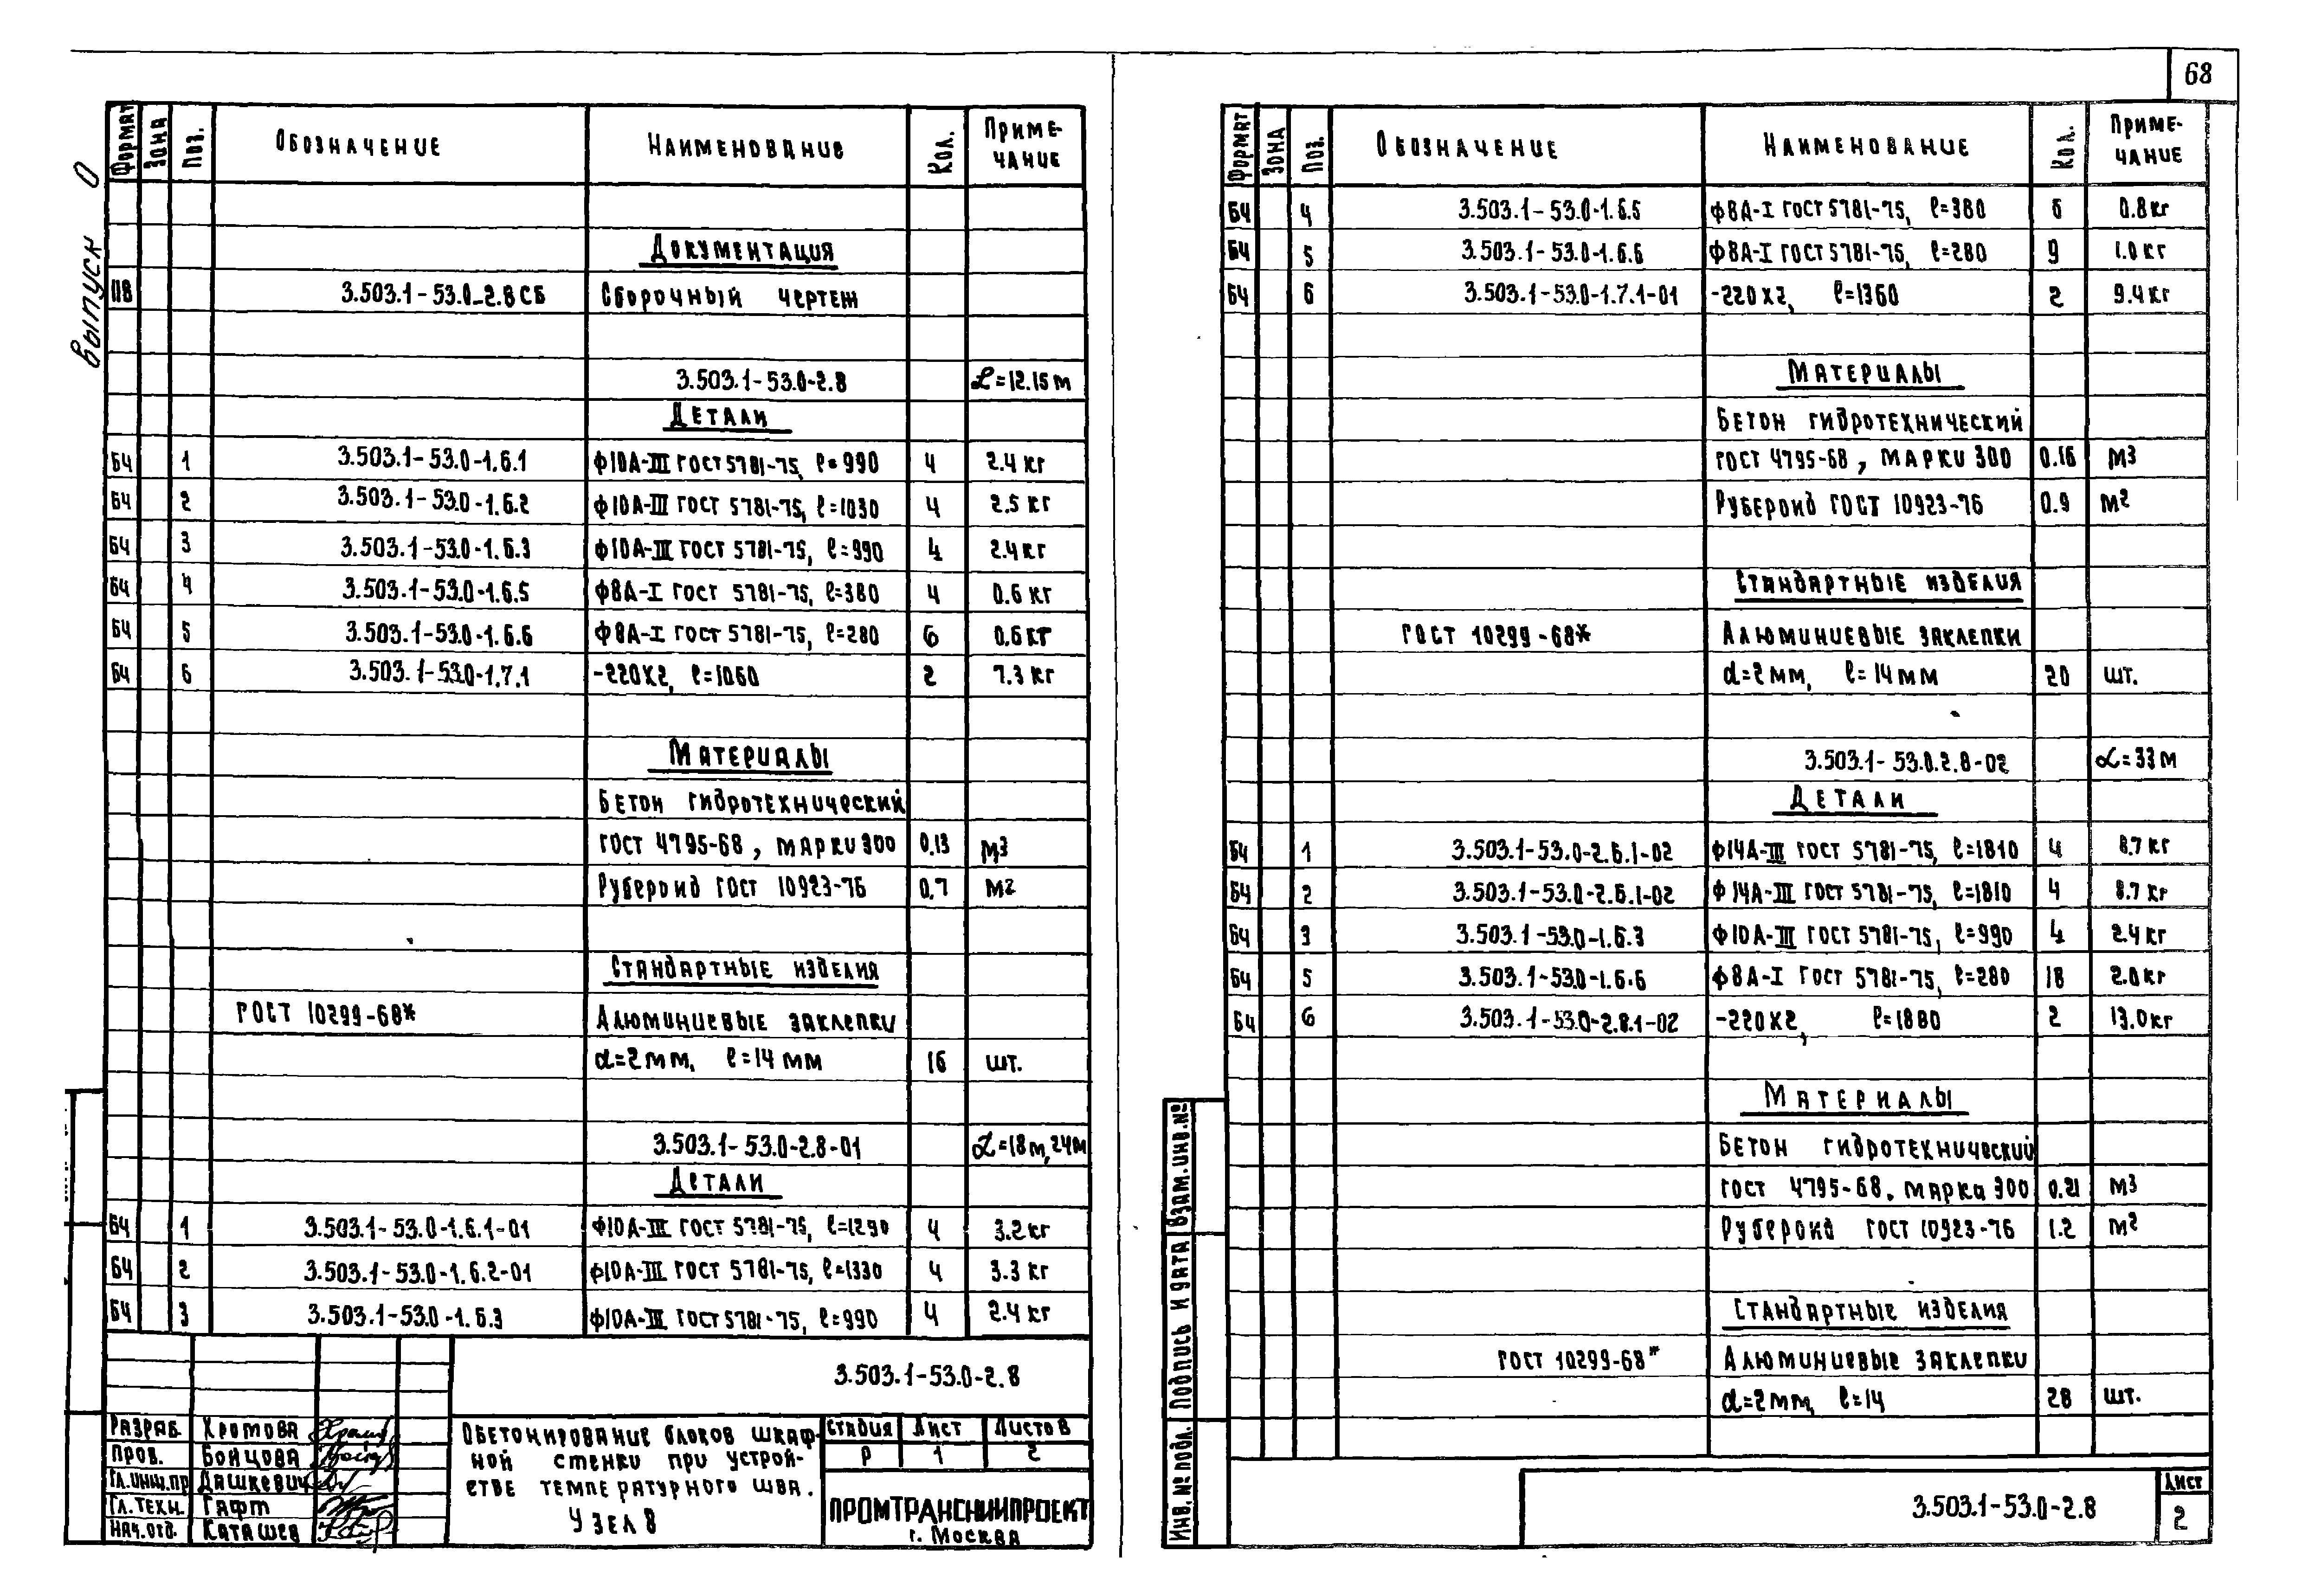 68
выпуск 0
Формат Зона Поз. Обозначение Наименование Кол. Приме-
чание
Документация
П8 3.503.1-53.0-2.8СБ Сборочный чертеж
3.503.1-53.0-2.8 L=12.15м
Детали
БЧ 1 3.503.1-53.0-1.6.1 ф10А-III ГОСТ 5781-75, l=990 4 2.4 кг
БЧ 2 3.503.1-53.0-1.6.2 ф10А-III ГОСТ 5781-75, l=1030 4 2.5 кг
БЧ 3 3.503.1-53.0-1.6.3 ф10А-III ГОСТ 5781-75, l=990 4 2.4 кг
БЧ 4 3.503.1-53.0-1.6.5 ф8А-I ГОСТ 5781-75, l=380 4 0.6 кг
БЧ 5 3.503.1-53.0-1.6.6 ф8А-I ГОСТ 5781-75, l=280 6 0.6 кг
БЧ 6 3.503.1-53.0-1.7.1 -220х2, l=1060 2 7.3 кг
Материалы
Бетон гидротехнический
ГОСТ 4795-68, марки 300 0.13 м3
Рубероид ГОСТ 10923-76 0.7 м2
Стандартные изделия
ГОСТ 10299-68* Алюминиевые заклепки
d=2мм, l=14мм 16 шт.
3.503.1-53.0-2.8-01 L=18м, 24м
Детали
БЧ 1 3.503.1-53.0-1.6.1-01 ф10А-III ГОСТ 5781-75, l=1290 4 3.2кг
БЧ 2 3.503.1-53.0-1.6.2-01 ф10А-III ГОСТ 5781-75, l=1330 4 3.3 кг
БЧ 3 3.503.1-53.0-1.6.3 ф10А-III ГОСТ 5781-75, l=990 4 2.4 кг
3.503.1-53.0-2.8
Разраб. Хромова
Пров. Бойцова
Гл.инж.пр Дашкевич
Гл.техн. Гафт
Нач.отд. Каташев
Обетонирование блоков шкаф-
ной стенки при устрой-
стве температурного шва.
Узел 8
Стадия Лист Листов
Р 1 2
ПРОМТРАНСНИИПРОЕКТ
г. Москва
Формат Зона Поз. Обозначение Наименование Кол. Приме-
чание
БЧ 4 3.503.1-53.0-1.6.5 ф8А-I ГОСТ 5781-75, l=380 6 0.8кг
БЧ 5 3.503.1-53.0-1.6.6 ф8А-I ГОСТ 5781-75, l=280 9 1.0 кг
БЧ 6 3.503.1-53.0-1.7.1-01 -220х2, l=1360 2 9.4 кг
Материалы
Бетон гидротехнический
ГОСТ 4795-68, марки 300 0.16 м3
Рубероид ГОСТ 10923-76 0.9 м2
Стандартные изделия
ГОСТ 10299-68* Алюминиевые заклепки
d=2мм, l=14мм 20 шт.
3.503.1-53.0.2.8-02 L=33м
Детали
БЧ 1 3.503.1-53.0-2.6.1-02 ф14А-III ГОСТ 5781-75, l=1810 4 8.7 кг
БЧ 2 3.503.1-53.0-2.6.1-02 ф14А-III ГОСТ 5781-75, l=1810 4 8.7 кг
БЧ 3 3.503.1-53.0-1.6.3 ф10А-III ГОСТ 5781-75, l=990 4 2.4 кг
БЧ 5 3.503.1-53.0-1.6.6 ф8А-I ГОСТ 5781-75, l=280 18 2.0 кг
БЧ 6 3.503.1-53.0-2.8.1-02 -220х2, l=1880 2 13.0кг
Материалы
Бетон гидротехнический
ГОСТ 4795-68, марки 300 0.21 м3
Рубероид ГОСТ 10923-76 1.2 м2
Стандартные изделия
ГОСТ 10299-68* Алюминиевые заклепки
d=2мм, l=14 28 шт.
Инв. № подл. Подпись и дата Взам.инв.№
3.503.1-53.0-2.8
Лист
2